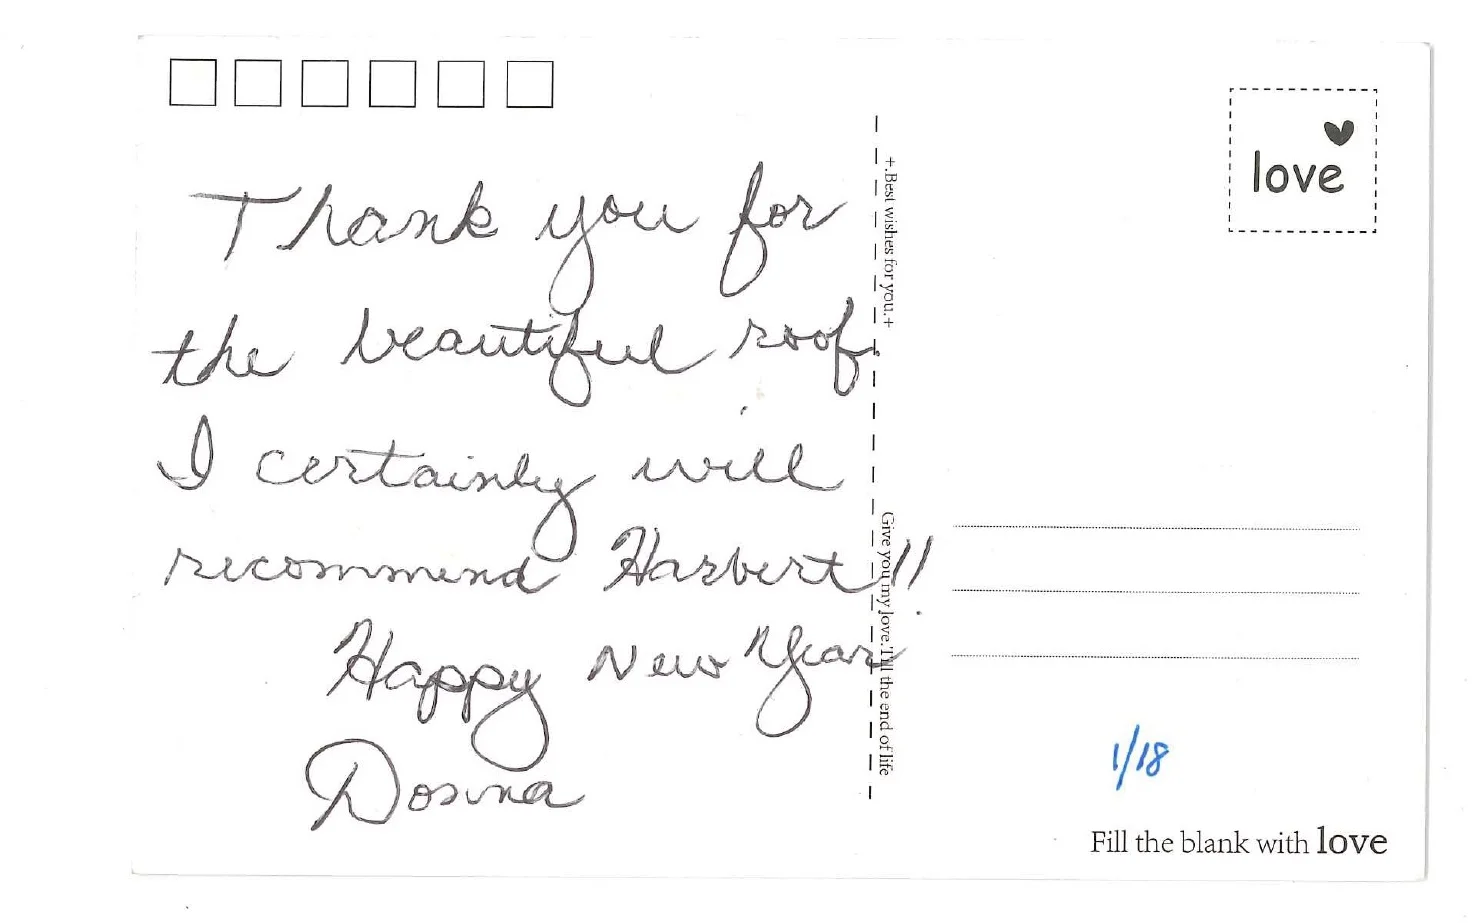 Thank you for
the beautiful roof.
I certainly will
recommend Harbert!!
Happy New Year
Donna
+.Best wishes for you.+
Give you my love.Till the end of life
love
1/18
Fill the blank with love